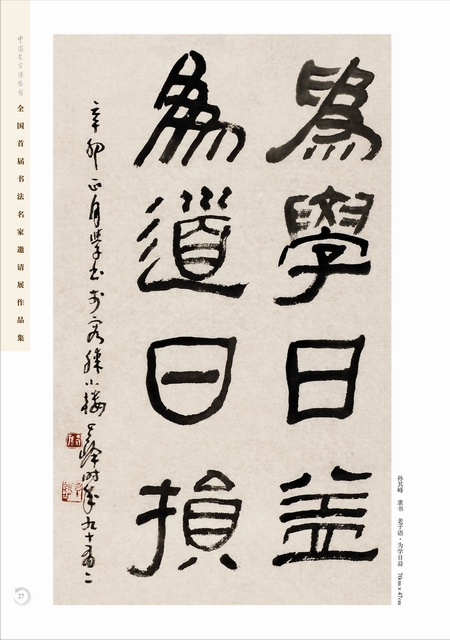 為學日益
為道日損
辛卯正月學書於容膝小樓其峰時年九十有二
孙其峰 隶书 老子语·为学日益 70cm×47cm
中国文字博物馆
全国首届书法名家邀请展作品集
27